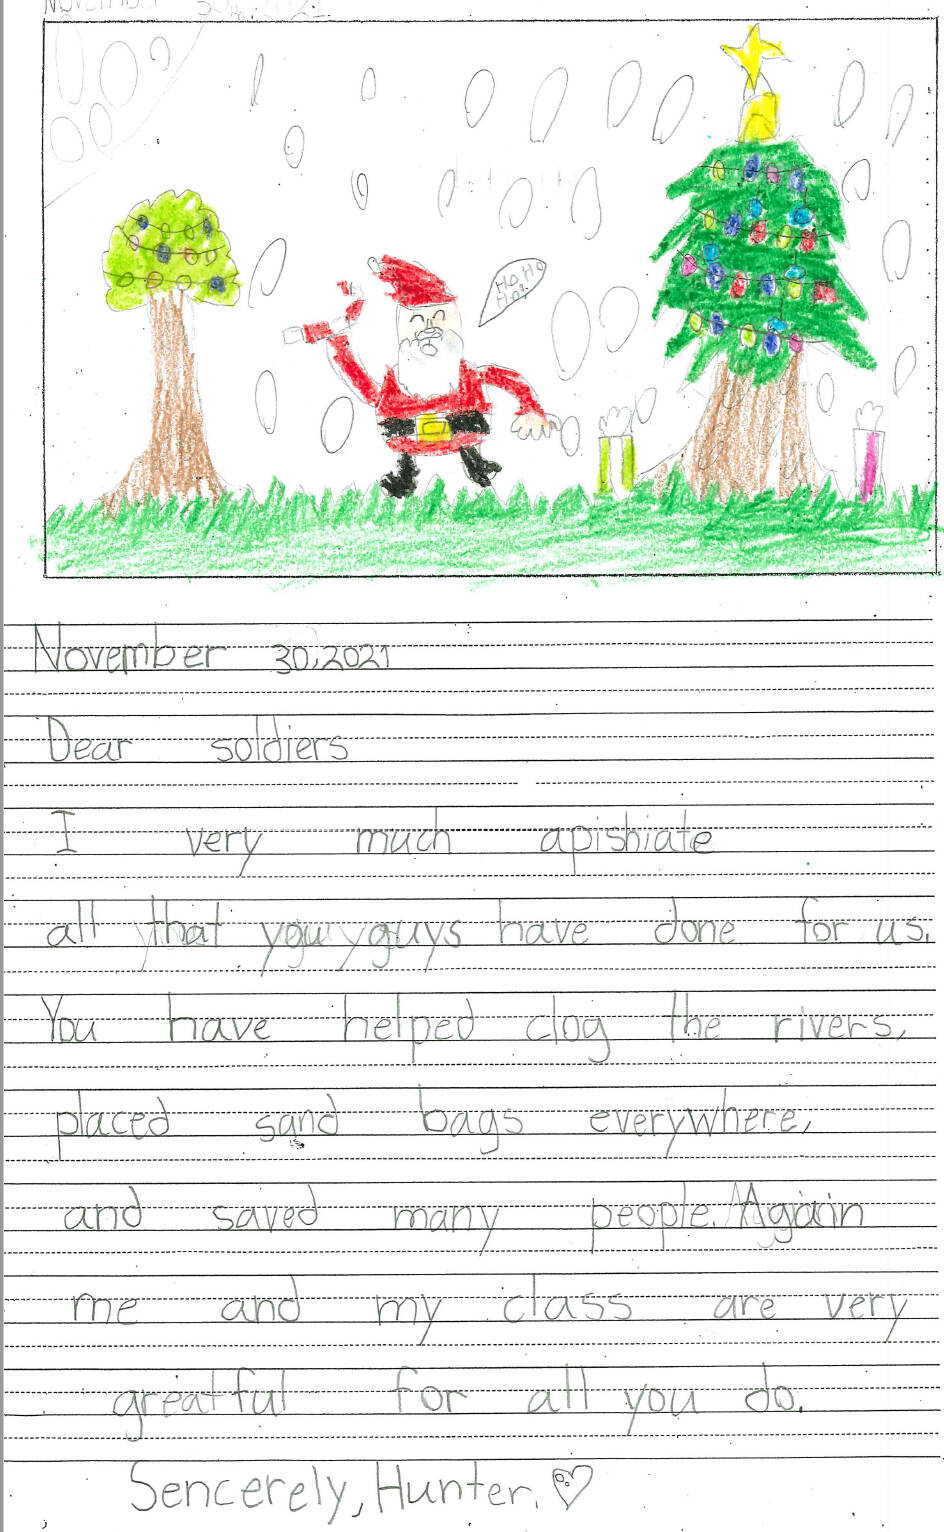 NOVEMBER 30, 2021
HO HO
HO!
November 30, 2021
Dear soldiers
I very much apishiate
all that you guys have done for us.
You have helped clog the rivers,
placed sand bags everywhere,
and saved many people. Again
me and my class are very
greatful for all you do.
Sencerely, Hunter.